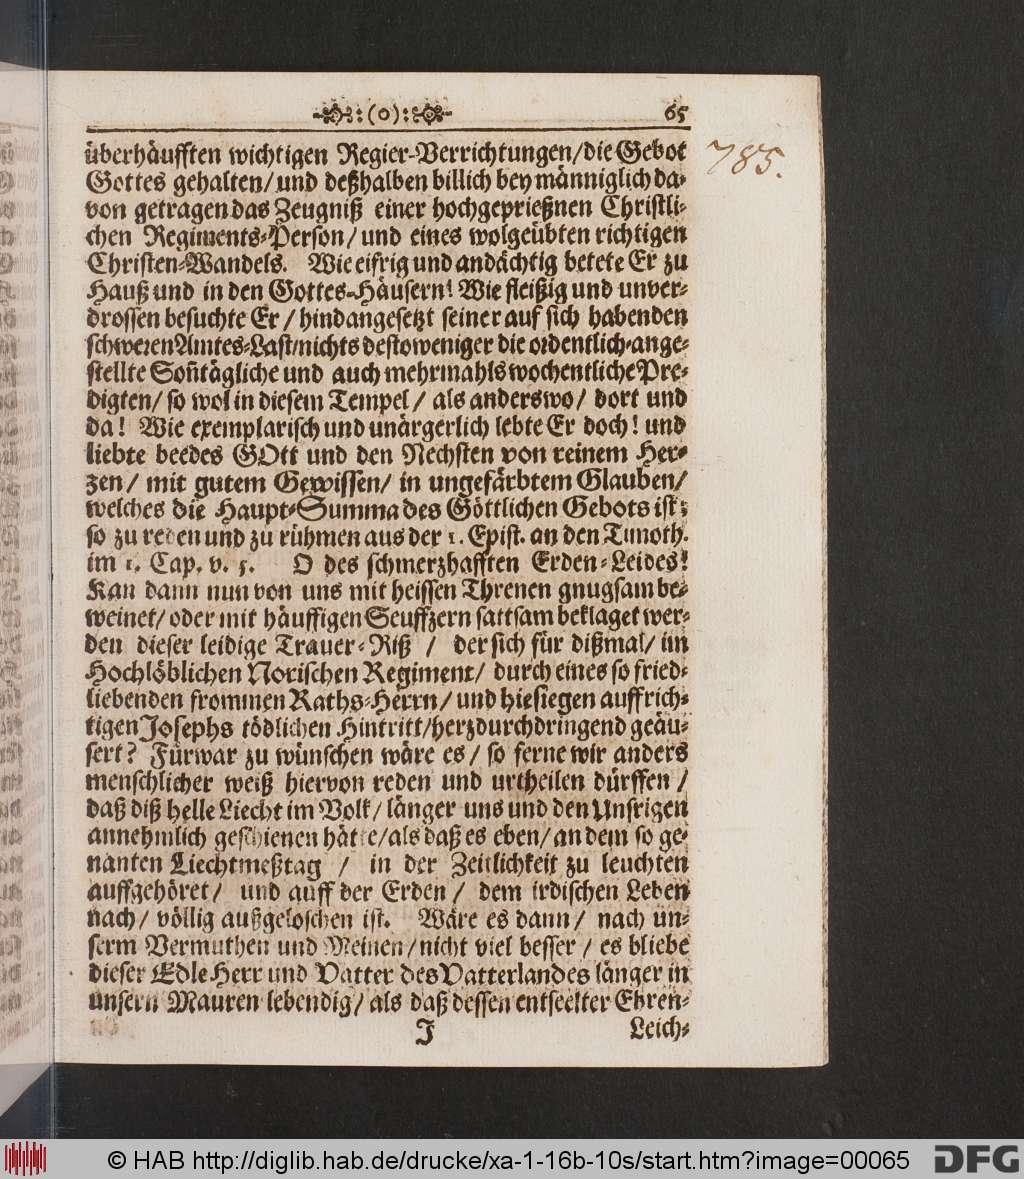 (o) 65
785.
überhäufften wichtigen Regier-Verrichtungen/die Gebot
Gottes gehalten/und deßhalben billich bey männiglich da-
von getragen das Zeugniß einer hochgeprießnen Christli-
chen Regiments-Person/und eines wolgeübten richtigen
Christen-Wandels. Wie eifrig und andächtig betete Er zu
Hauß und in den Gottes-Häusern! Wie fleißig und unver-
drossen besuchte Er/hindangesetzt seiner auf sich habenden
schweren Amtes-Last/nichts destoweniger die ordentlich-ange-
stellte Soñtägliche und auch mehrmahls wochentliche Pre-
digten/so wol in diesem Tempel/als anderswo/dort und
da! Wie exemplarisch und unärgerlich lebte Er doch! und
liebte beedes GOtt und den Nechsten von reinem Her-
zen/mit gutem Gewissen/in ungefärbtem Glauben/
welches die Haupt-Summa des Göttlichen Gebots ist;
so zu reden und zu rühmen aus der 1. Epist. an den Timoth.
im 1. Cap. v. 5. O des schmerzhafften Erden-Leides!
Kan dann nun von uns mit heissen Threnen gnugsam be-
weinet/oder mit häuffigen Seuffzern sattsam beklaget wer-
den dieser leidige Trauer-Riß/der sich für dißmal/im
Hochlöblichen Norischen Regiment/durch eines so fried-
liebenden frommen Raths-Herrn/und hiesiegen auffrich-
tigen Josephs tödlichen Hintritt/herzdurchdringend geäu-
sert? Fürwar zu wünschen wäre es/so ferne wir anders
menschlicher weiß hiervon reden und urtheilen dürffen/
daß diß helle Liecht im Volk/länger uns und den Unsrigen
annehmlich geschienen hätte/als daß es eben/an dem so ge-
nanten Liechtmeßtag/in der Zeitlichkeit zu leuchten
auffgehöret/und auff der Erden/dem irdischen Leben
nach/völlig außgeloschen ist. Wäre es dann/nach un-
serm Vermuthen und Meinen/nicht viel besser/es bliebe
dieser Edle Herr und Vatter des Vatterlandes länger in
unsern Mauren lebendig/als daß dessen entseelter Ehren-
J Leich-
© HAB http://diglib.hab.de/drucke/xa-1-16b-10s/start.htm?image=00065
DFG